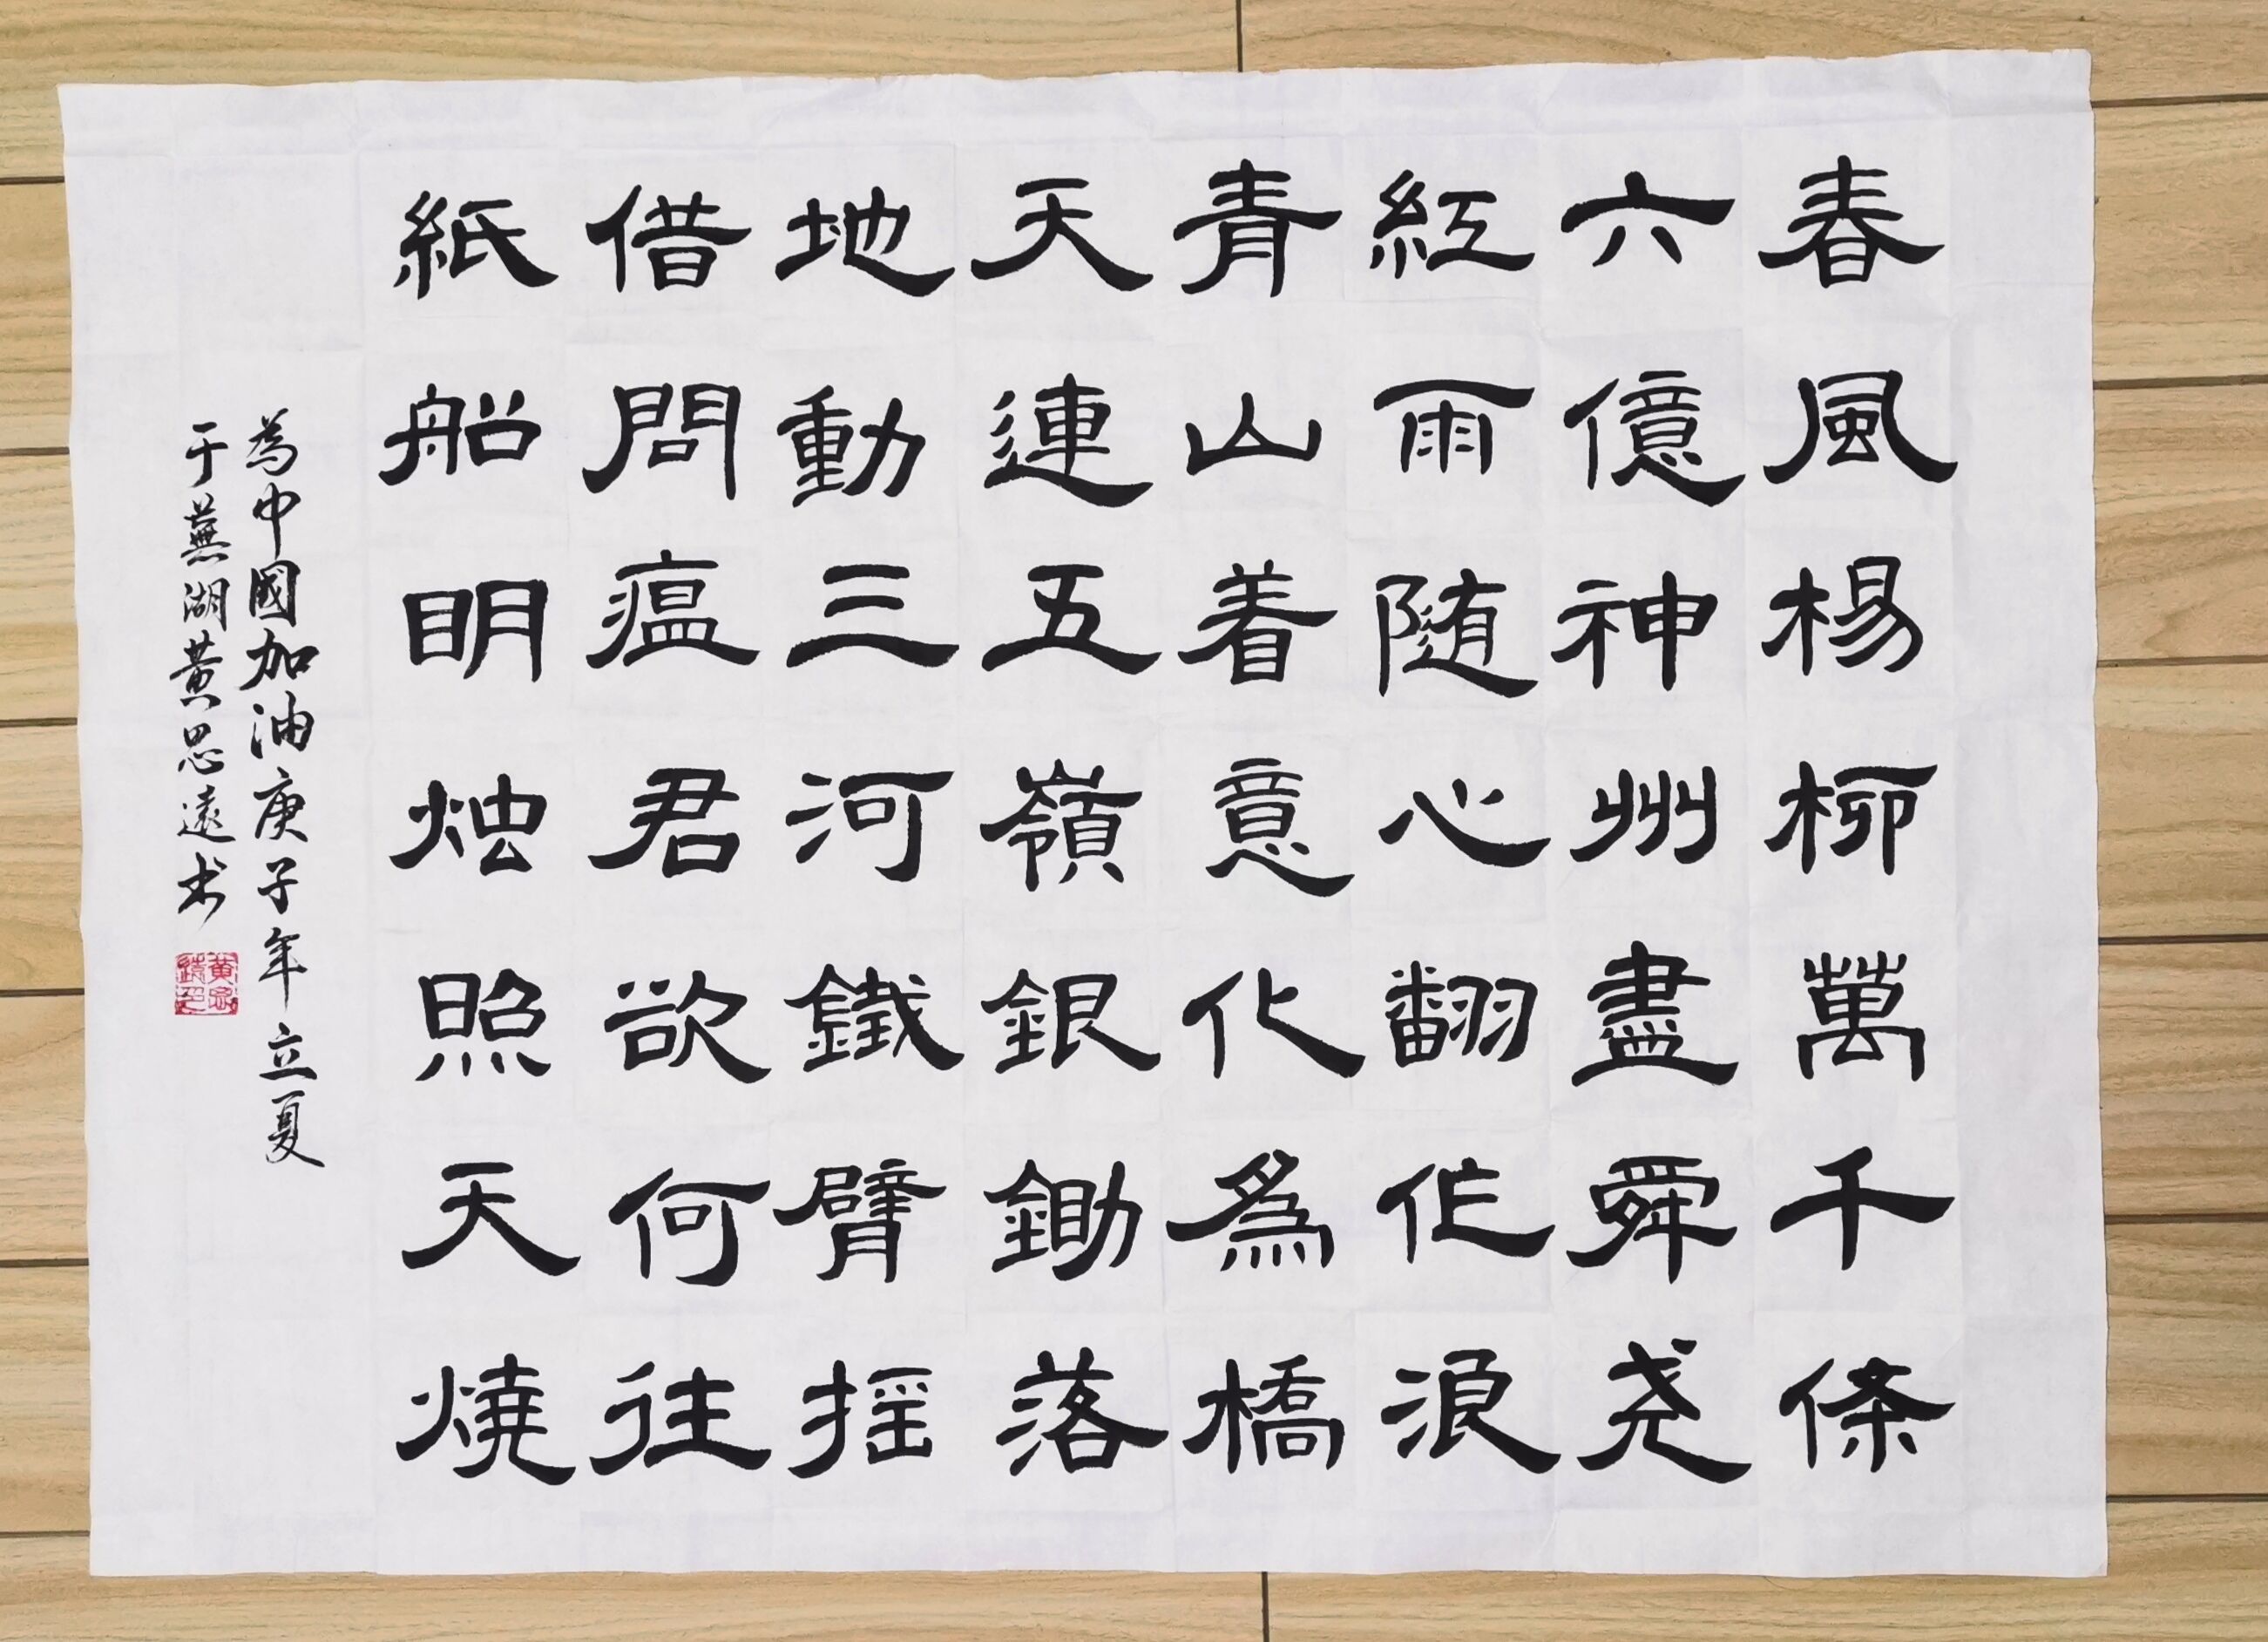 春風楊柳萬千條
六億神州盡舜尧
紅雨随心翻作浪
青山着意化為橋
天連五嶺銀鋤落
地動三河鐵臂摇
借問瘟君欲何往
紙船明烛照天燒
為中國加油庚子年立夏
于蕪湖黄思遠书
黄思遠印